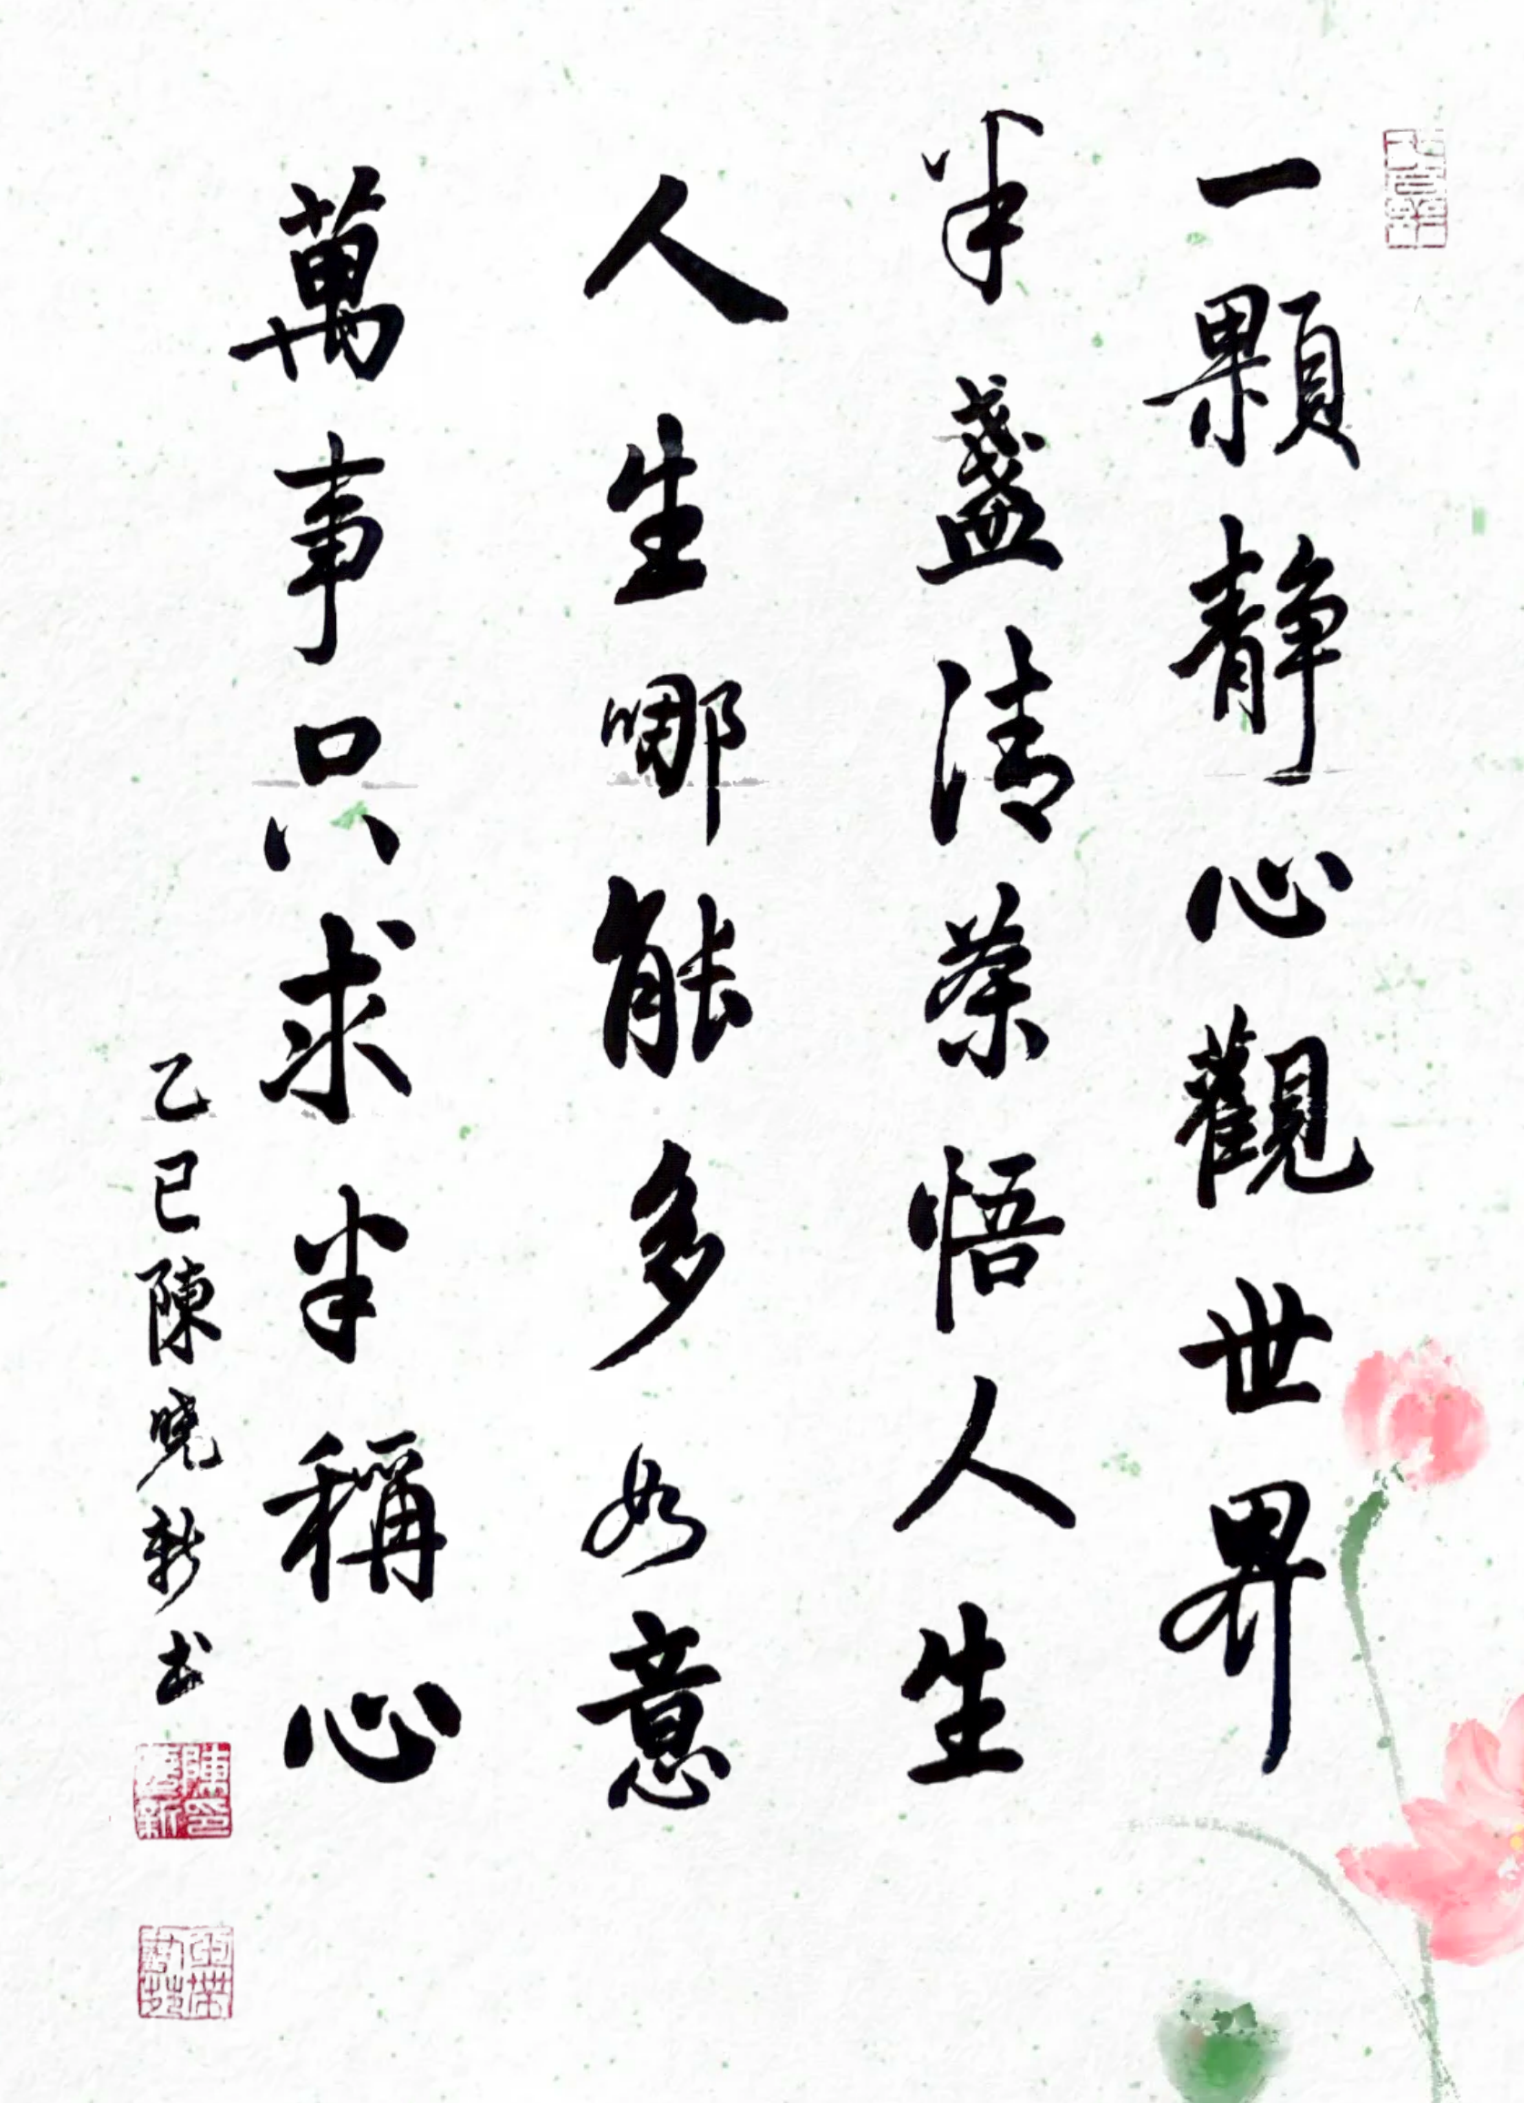 一顆静心觀世界
半盞清茶悟人生
人生哪能多如意
萬事只求半稱心
乙巳陳晓新书
陳印晓新